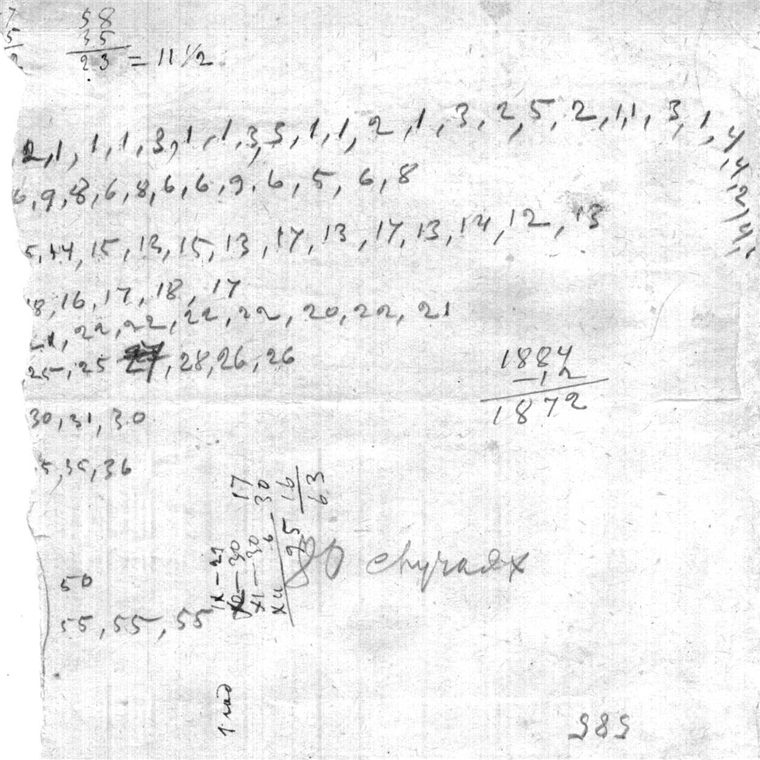 58
35
23 = 11 1/2
2,1, 1,1,3,1, 1,3,3,1,1, 2, 1, 3, 2,5, 2, 1,1, 3, 1, 4,
4,
2,
4,
6,9,8,6,8,6,6,9,6,5, 6,8
5,14,15,13,15,13,17,13,17,13,14,12,13
18,16,17,18,17
21,22,22,22,22,20,22,21
25,25 27,28,26,26
1884
-12
1872
30,31,30
5,35,36
17
30
16
63
IX-29
XI-30
XII 6
95
80 случаях
50
55,55,55
985